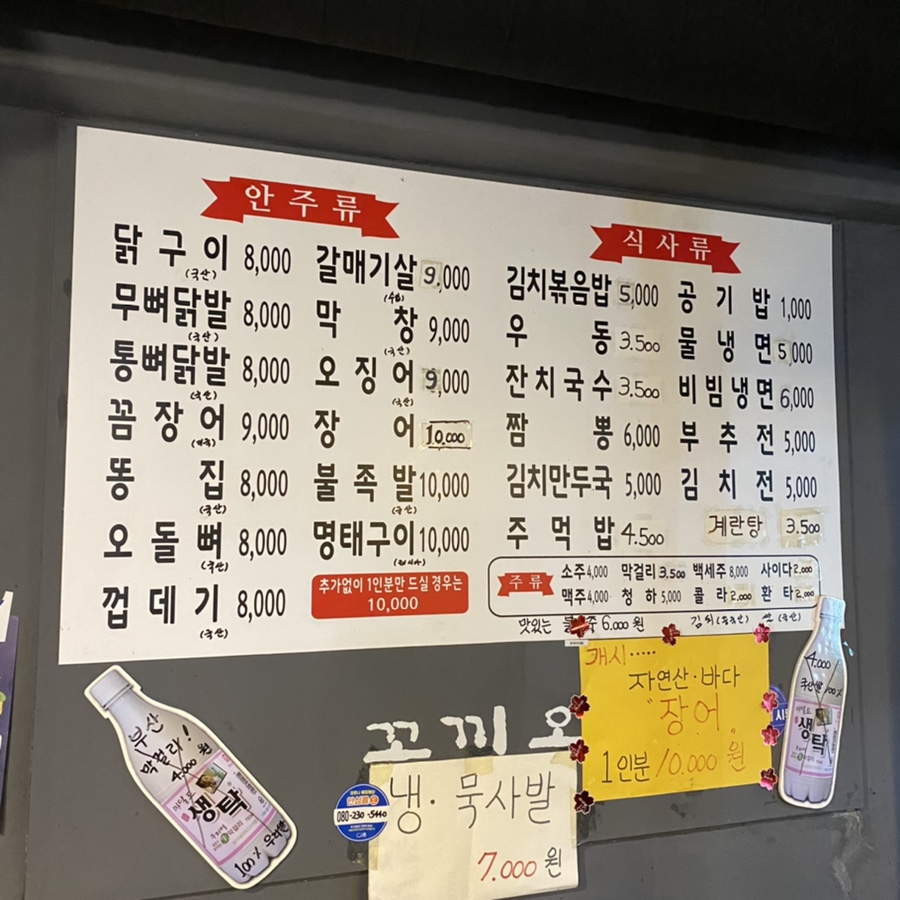 안주류
닭구이 8,000
(국산)
무뼈닭발 8,000
(국산)
통뼈닭발 8,000
(국산)
꼼장어 9,000
똥집 8,000
(국산)
오돌뼈 8,000
(국산)
껍데기 8,000
(국산)
갈매기살 9,000
막창 9,000
(국산)
오징어 9,000
(국산)
장어 10.000
불족발 10,000
(국산)
명태구이 10,000
추가없이 1인분만 드실 경우는
10,000
식사류
김치볶음밥 5,000
우동 3.500
잔치국수 3.500
짬뽕 6,000
김치만두국 5,000
주먹밥 4.500
공기밥 1,000
물냉면 5,000
비빔냉면 6,000
부추전 5,000
김치전 5,000
계란탕 3.500
주류
소주 4,000 막걸리 3.500 백세주 8,000 사이다 2,000
맥주 4,000 청하 5,000 콜라 2,000 환타 2,000
맛있는 6.000원
캐시.....
자연산·바다
장어
1인분 10.000원
꼬끼오
냉·묵사발
7.000원
080-230-5440
부산
막걸리!
4,000원
생탁
100% 우리쌀
4.000
생탁